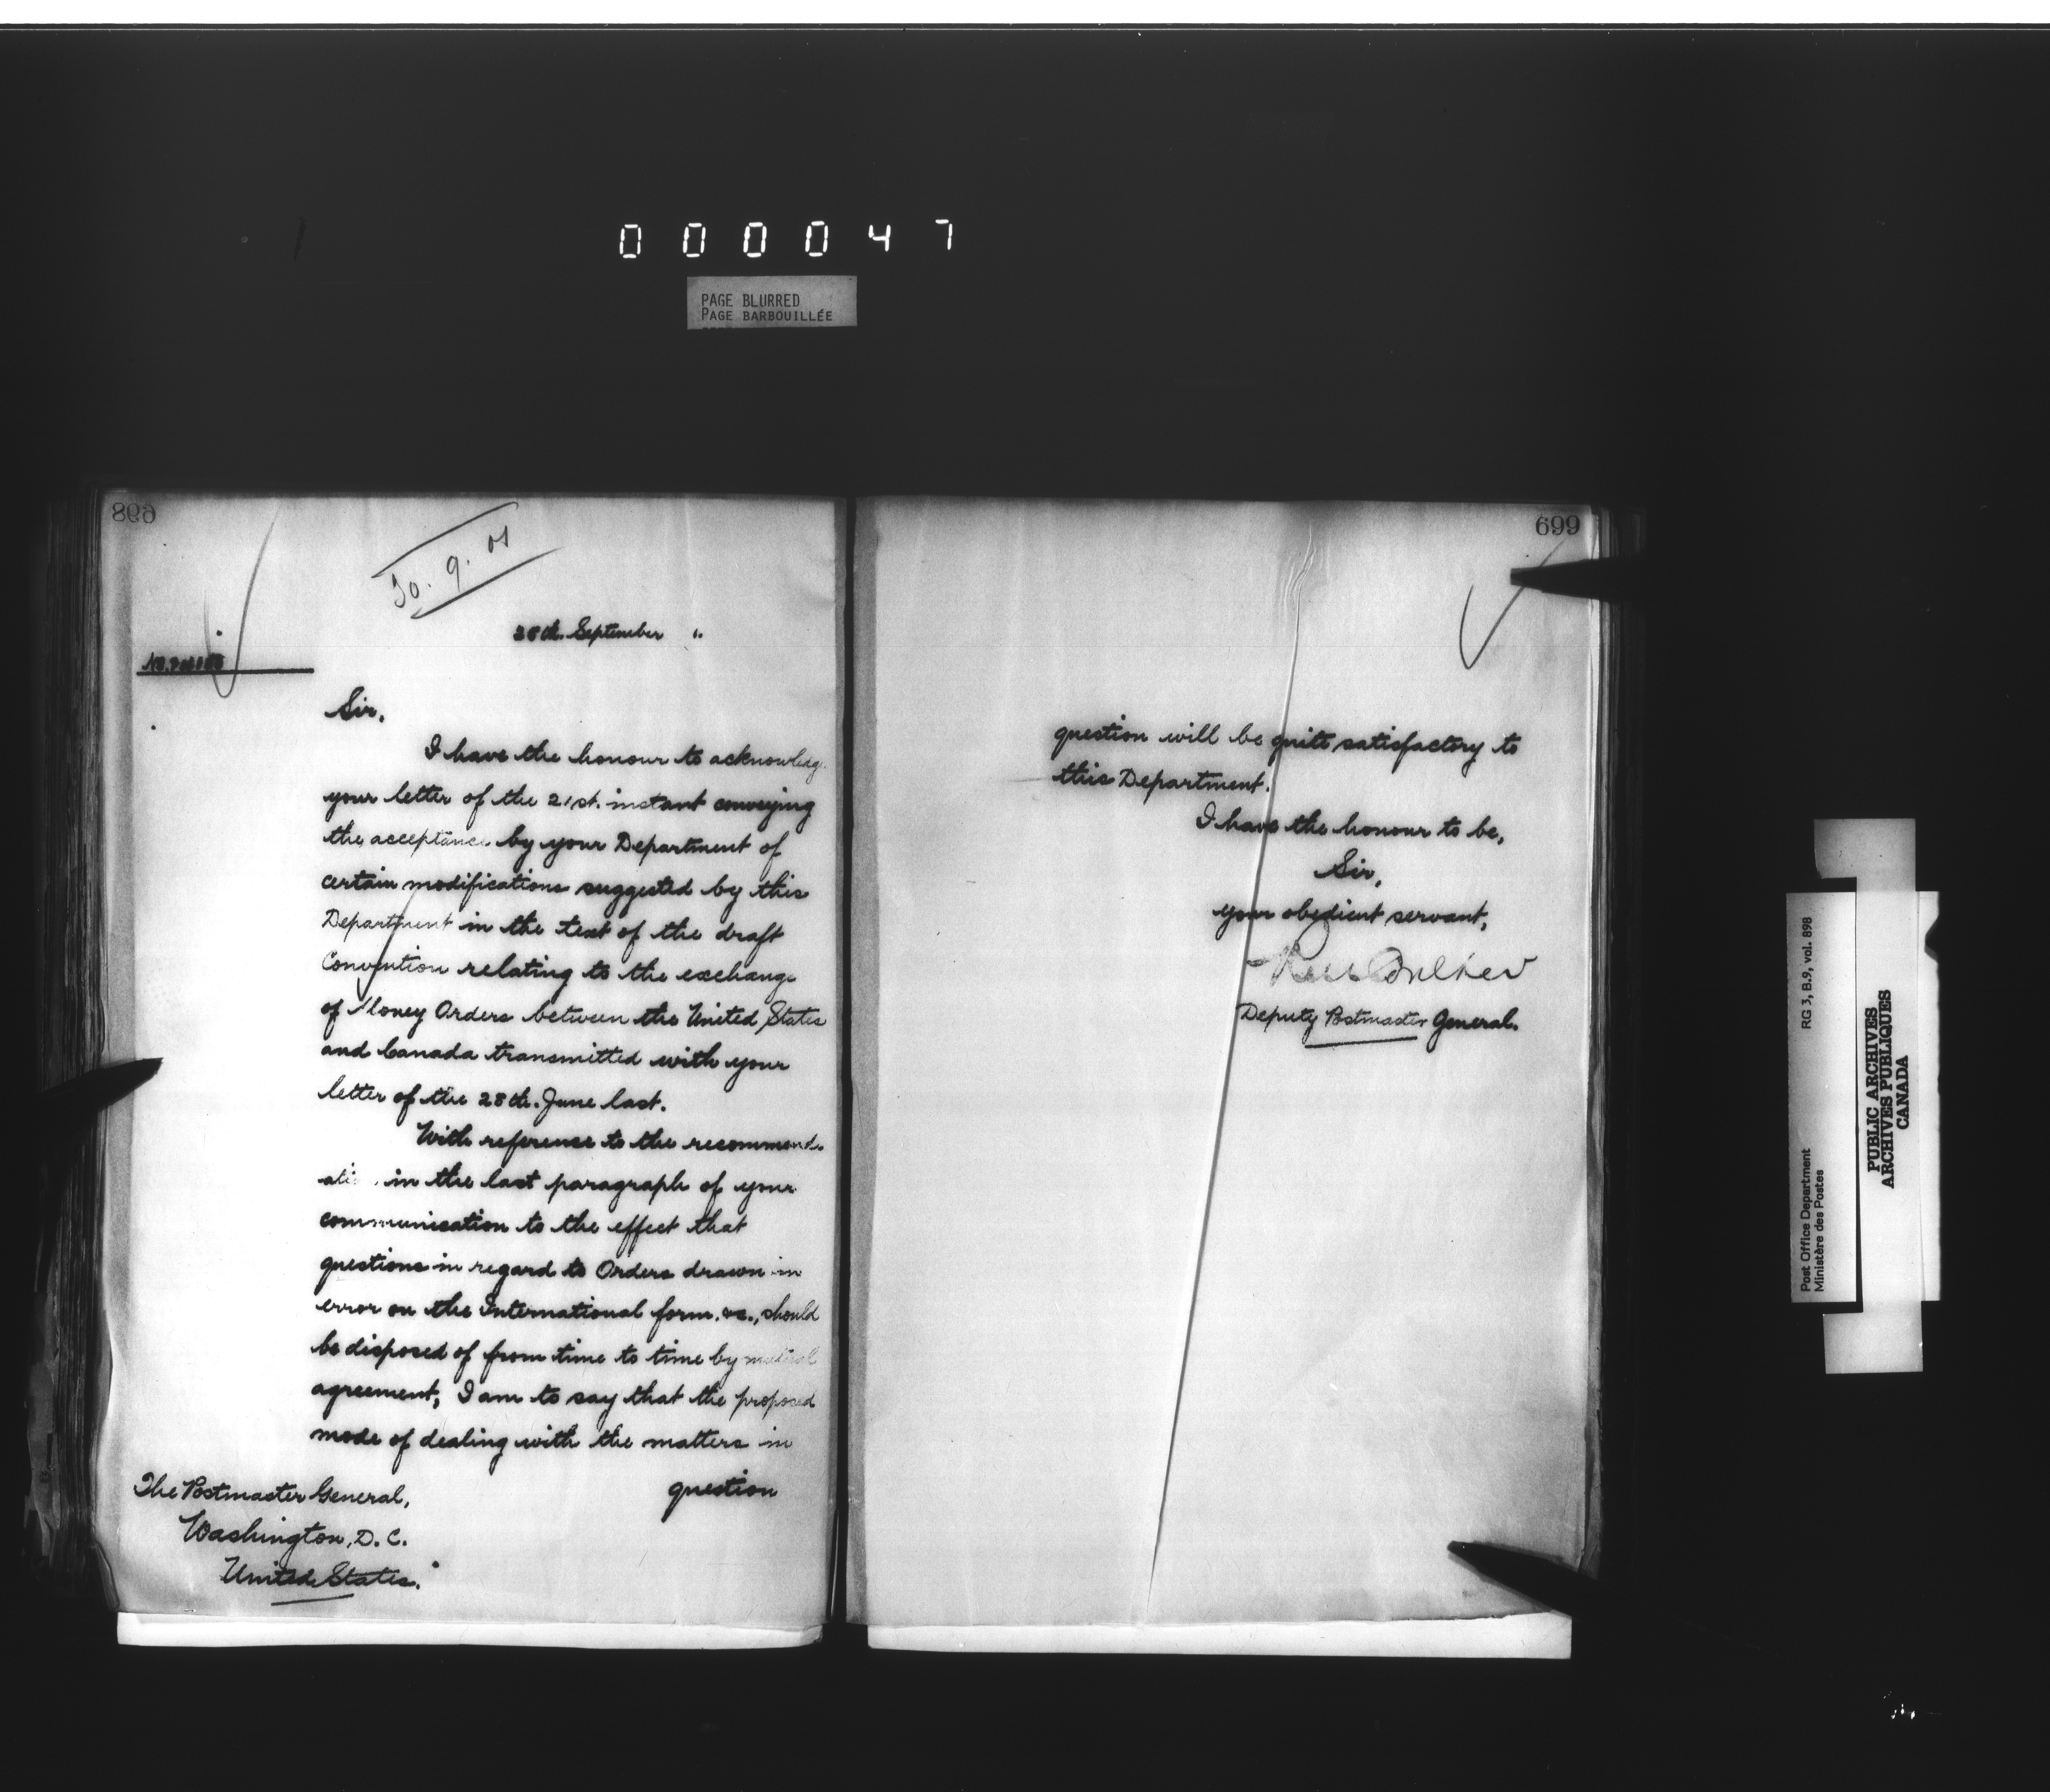 0 0 0 0 4 7
PAGE BLURRED
PAGE BARBOUILLÉE
698
30. 9. 01
28th. September
Sir,
I have the honour to acknowledg
your letter of the 21st. instant conveying
the acceptance by your Department of
certain modifications suggested by this
Department in the text of the draft
Convention relating to the exchange
of Money Orders between the United States
and Canada transmitted with your
letter of the 28th. June last.
With reference to the recommend-
ati in the last paragraph of your
communication to the effect that
questions in regard to Orders drawn in
error on the International form, &c., should
be disposed of from time to time by mutual
agreement, I am to say that the proposed
mode of dealing with the matters in
question
The Postmaster General,
Washington, D. C.
United States.
699
question will be quite satisfactory to
this Department.
I have the honour to be,
Sir,
your obedient servant,
Deputy Postmaster General.
Post Office Department
Ministère des Postes
RG 3, B.9, vol. 898
PUBLIC ARCHIVES
ARCHIVES PUBLIQUES
CANADA